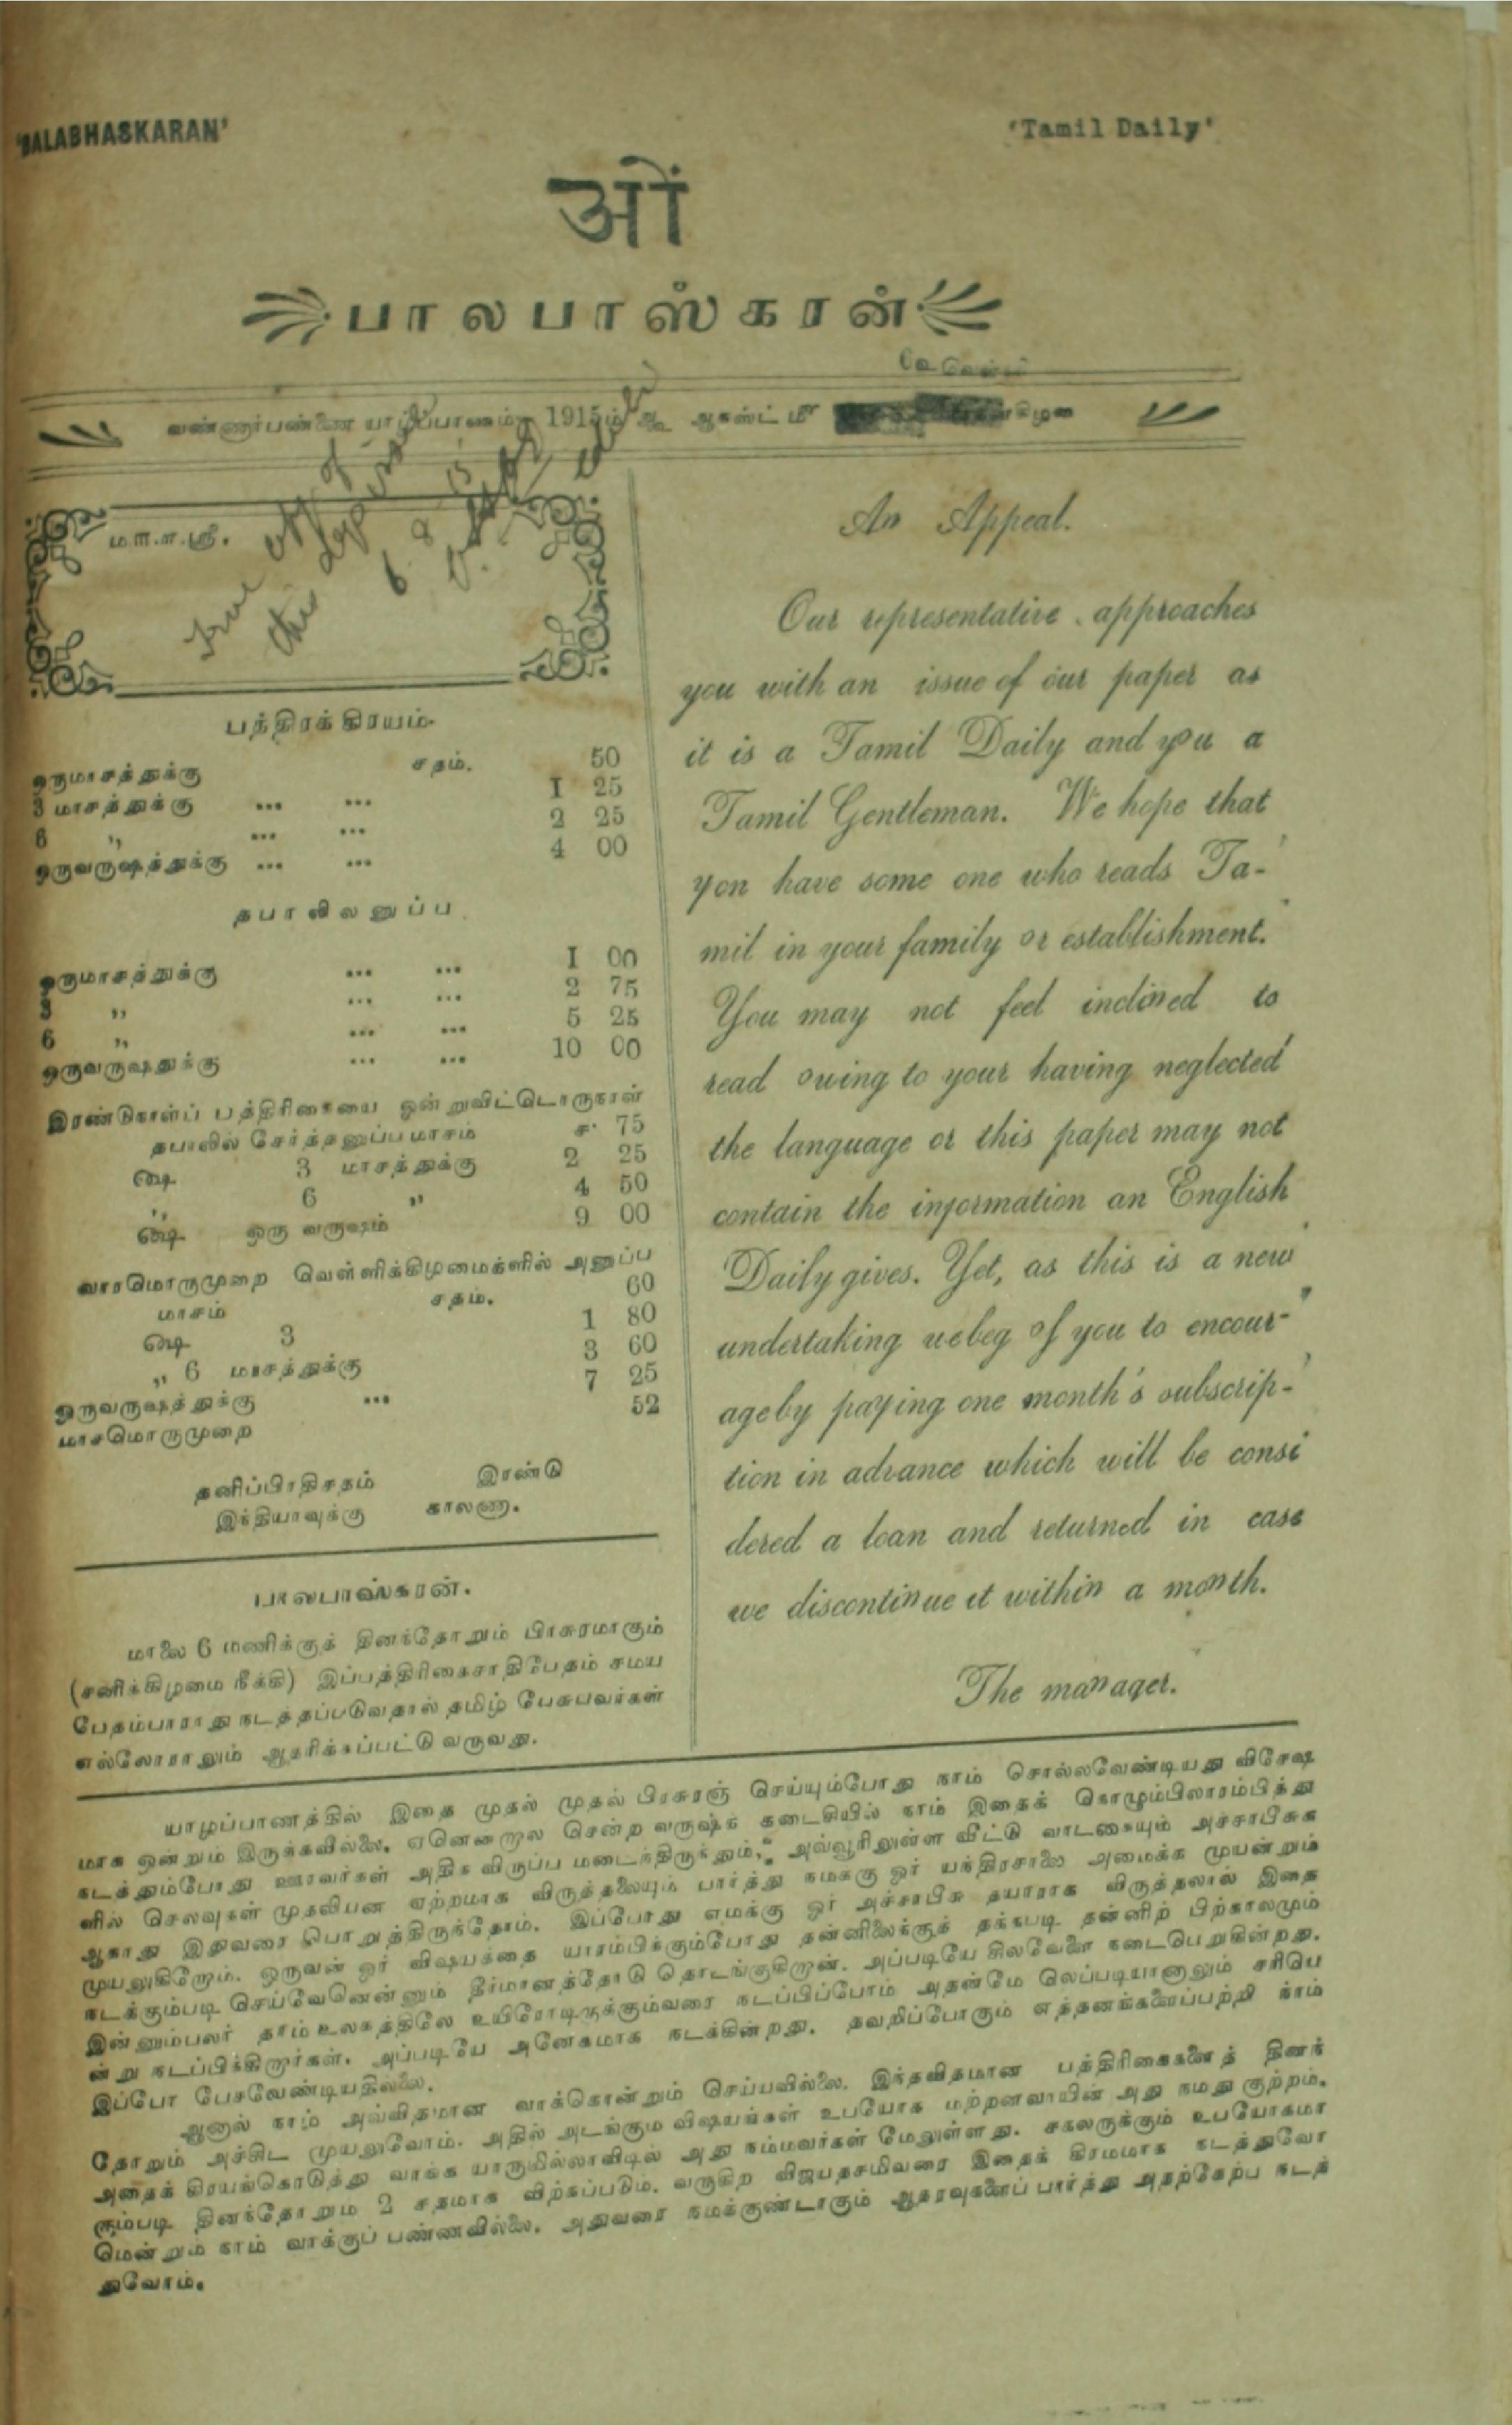 'BALABHASKARAN'
'Tamil Daily'
ओं
பாலபாஸ்கரன்
வண்ணார்பண்ணை யாழ்ப்பாணம் 1915ம் ௵ ஆகஸ்ட் ௴
மா.ா.ா.ஸ்ரீ.
True
this
6 8 15
பத்திரக் கிரயம்.
ஒருமாசத்துக்கு சதம். 50
3 மாசத்துக்கு ... ... I 25
6 ,, ... ... 2 25
ஒருவருஷத்துக்கு ... ... 4 00
தபாலிலனுப்ப
ஒருமாசத்துக்கு ... ... I 00
3 ,, ... ... 2 75
6 ,, ... ... 5 25
ஒருவருஷதுக்கு ... ... 10 00
இரண்டுநாள்ப் பத்திரிகையை ஒன்றுவிட்டொருநாள்
தபாலில் சேர்த்தனுப்ப மாசம் ச. 75
ஷை 3 மாசத்துக்கு 2 25
,, 6 ,, 4 50
ஷை ஒரு வருஷம் 9 00
வாரமொருமுறை வெள்ளிக்கிழமைகளில் அனுப்ப
மாசம் சதம். 60
ஷை 3 1 80
,, 6 மாசத்துக்கு 3 60
ஒருவருஷத்துக்கு ... 7 25
மாசமொருமுறை 52
தனிப்பிரதிசதம் இரண்டு
இந்தியாவுக்கு காலணா.
பாலபாஸ்கரன்.
மாலை 6 மணிக்குத் தினந்தோறும் பிரசுரமாகும்
(சனிக்கிழமை நீக்கி) இப்பத்திரிகைசாதிபேதம் சமய
பேதம்பாராது நடத்தப்படுவதால் தமிழ் பேசுபவர்கள்
எல்லோராலும் ஆதரிக்கப்பட்டு வருவது.
An Appeal.
Our representative approaches
you with an issue of our paper as
it is a Tamil Daily and you a
Tamil Gentleman. We hope that
yon have some one who reads Ta-
mil in your family or establishment.
You may not feel inclined to
read owing to your having neglected
the language or this paper may not
contain the information an English
Daily gives. Yet, as this is a new
undertaking webeg of you to encour-
ageby paying one month's subscrip-
tion in advance which will be consi
dered a loan and returned in case
we discontinue it within a month.
The manager.
யாழப்பாணத்தில் இதை முதல் முதல் பிரசுரஞ் செய்யும்போது நாம் சொல்லவேண்டியது விசேஷ
மாக ஒன்றும் இருக்கவில்லை. ஏனென்றால் சென்ற வருஷக் கடைசியில் நாம் இதைக் கொழும்பிலாரம்பித்து
நடத்தும்போது ஊரவர்கள் அதிக விருப்ப மடைந்திருந்தும், அவ்வூரிலுள்ள வீட்டு வாடகையும் அச்சாபீசுக
ளில் செலவுகள் முதலியன ஏற்றமாக விருத்தலையும் பார்த்து நமக்கு ஓர் யந்திரசாலை அமைக்க முயன்றும்
ஆகாது இதுவரை பொறுத்திருந்தோம். இப்போது எமக்கு ஓர் அச்சாபீசு தயாராக விருத்தலால் இதை
முயலுகிறோம். ஒருவன் ஓர் விஷயத்தை யாரம்பிக்கும்போது தன்னிலைக்குத் தக்கபடி தன்னிற் பிற்காலமும்
நடக்கும்படி செய்வேனென்னும் தீர்மானத்தோடு தொடங்குகிறான். அப்படியே சிலவேளை நடைபெறுகின்றது.
இன்னும்பலர் தாம் உலகத்திலே உயிரோடிருக்கும்வரை நடப்பிப்போம் அதன்மே லெப்படியானாலும் சரியெ
ன்று நடப்பிக்கிறார்கள். அப்படியே அனேகமாக நடக்கின்றது. தவறிப்போகும் எத்தனங்களைப்பற்றி நாம்
இப்போ பேசவேண்டியதில்லை.
ஆனால் நாம் அவ்விதமான வாக்கொன்றும் செய்யவில்லை. இந்தவிதமான பத்திரிகைகளைத் தினந்
தோறும் அச்சிட முயலுவோம். அதில் அடங்கும விஷயங்கள் உபயோக மற்றனவாயின் அது நமது குற்றம்.
அதைக் கிரயங்கொடுத்து வாங்க யாருமில்லாவிடில் அது நம்மவர்கள் மேலுள்ளது. சகலருக்கும் உபயோகமா
கும்படி தினந்தோறும 2 சதமாக விற்கப்படும். வருகிற விஜயதசமிவரை இதைக் கிரமமாக நடத்துவோ
மென்றும் நாம் வாக்குப் பண்ணவில்லை. அதுவரை நமக்குண்டாகும் ஆதரவுகளைப் பார்த்து அதற்கேற்ப நடத்
துவோம்.